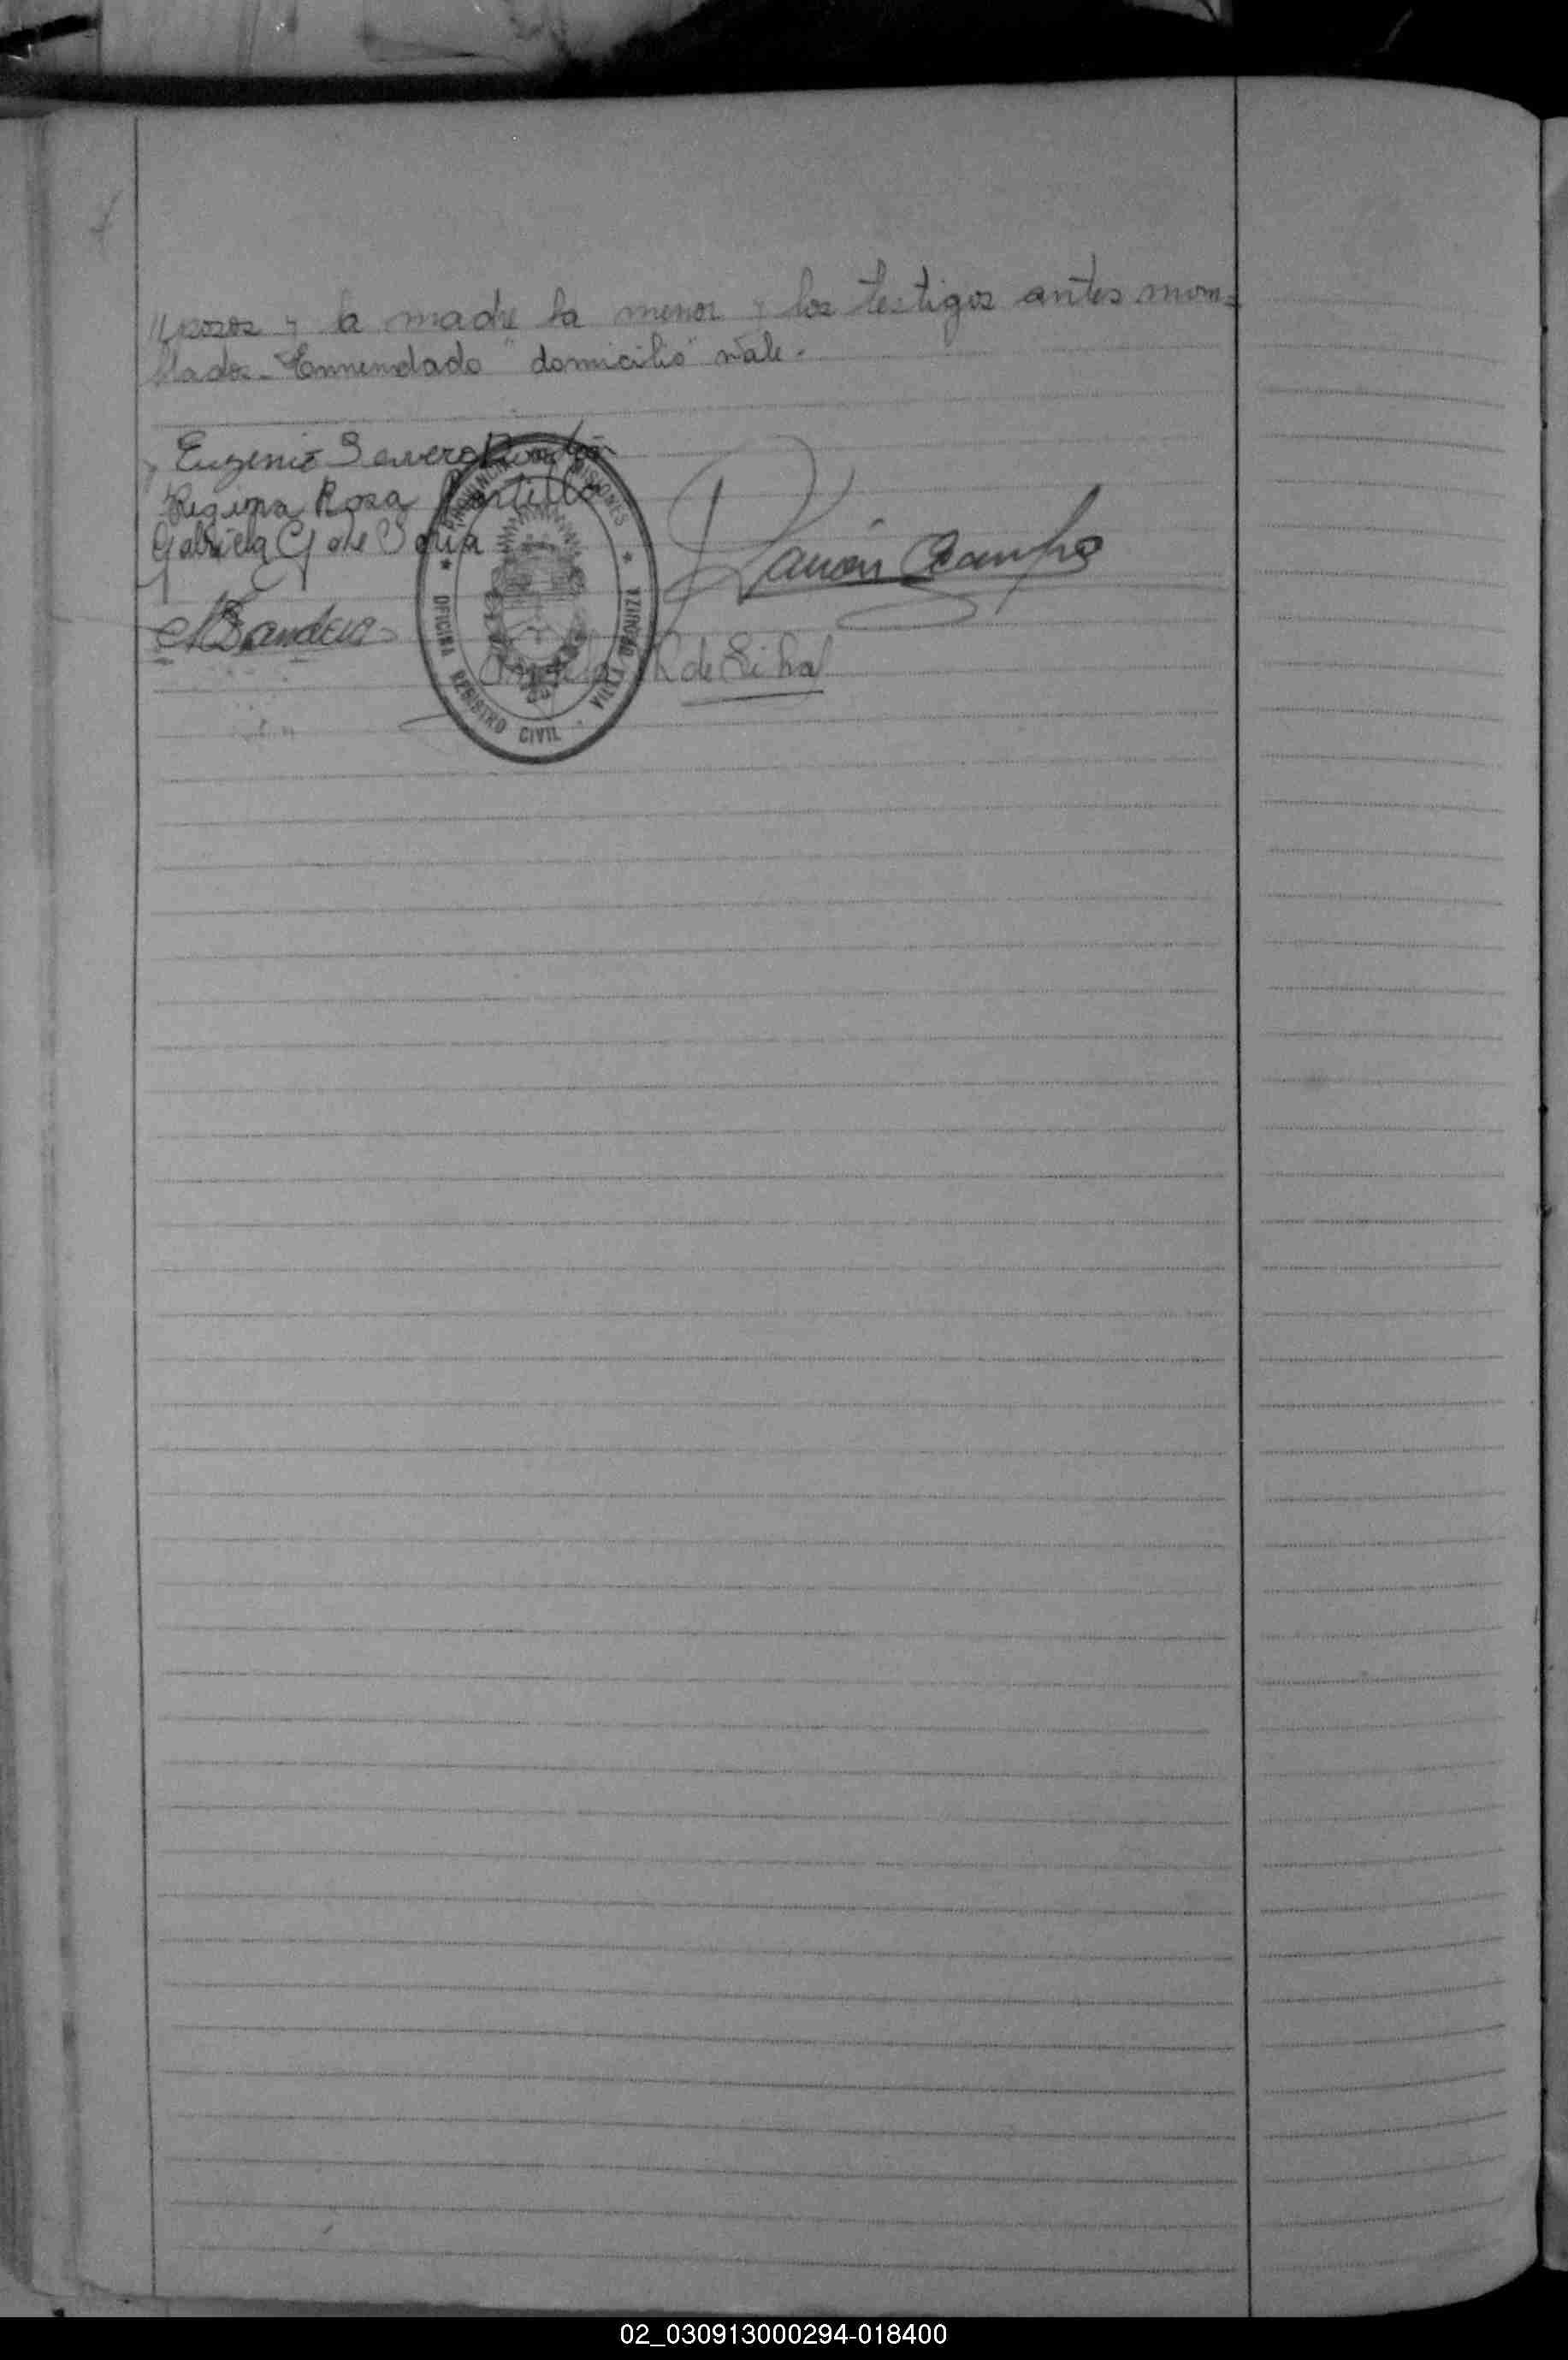 //posos y la madre la menor y los testigos antes mom=
blados- Enmendado "domicilio" vale.
Eugenio Severo
Regina Rosa Portillo
Gabriela G de Soria
Ramón Ocampo
R de Silva
PROVINCIA DE MISIONES
* OFICINA REGISTRO CIVIL - VILLA URQUIZA *
02_030913000294-018400